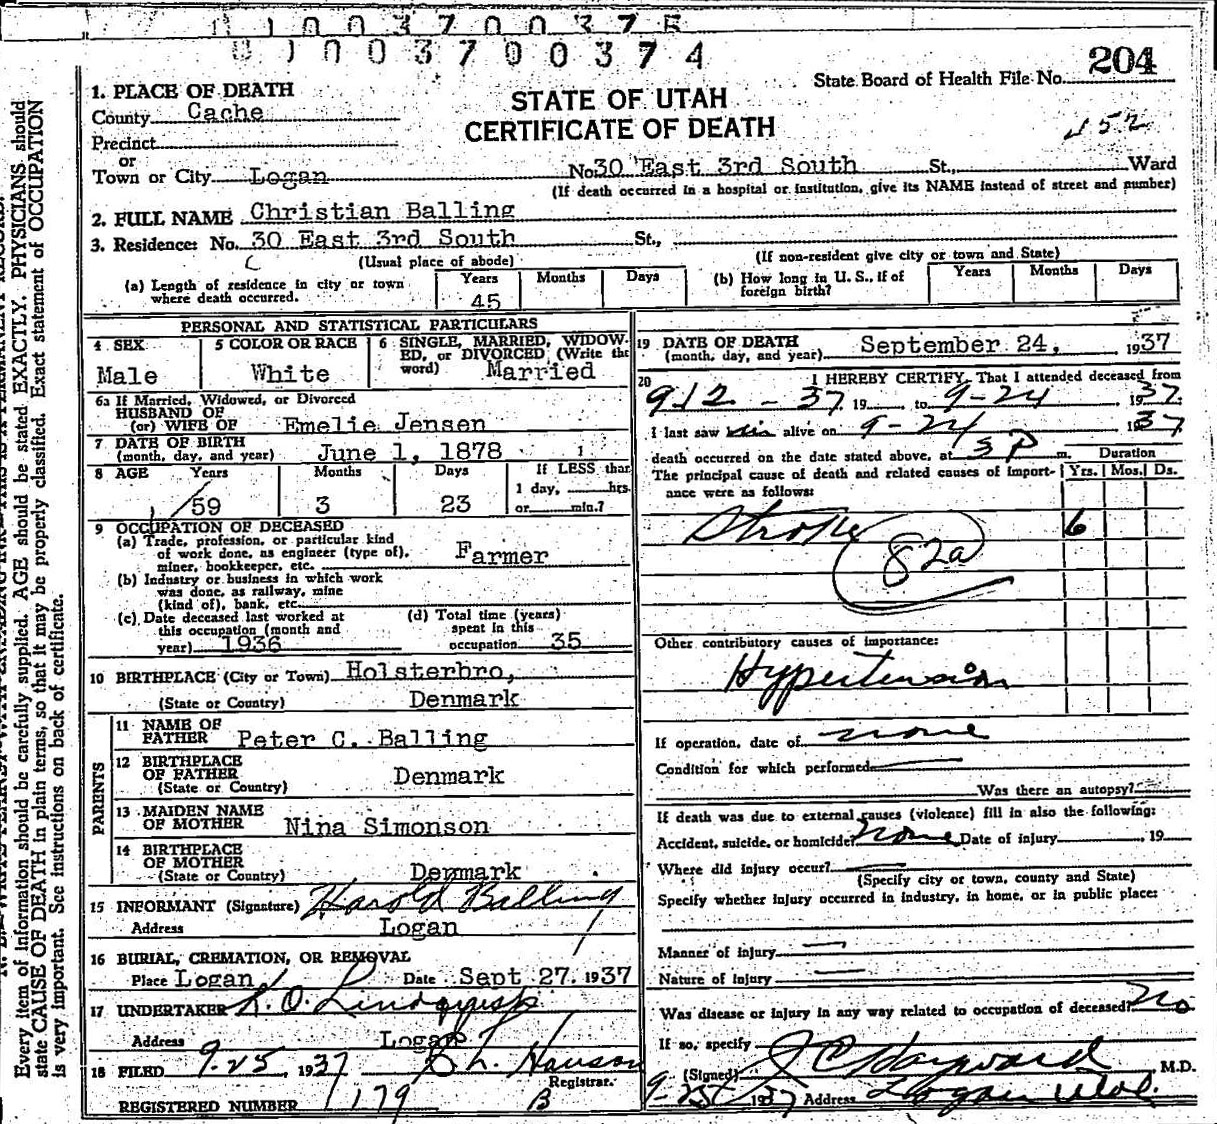 01003700375
01003700374
State Board of Health File No. 204
STATE OF UTAH
CERTIFICATE OF DEATH
452
1. PLACE OF DEATH
County Cache
Precinct
or
Town or City Logan No. 30 East 3rd South St., Ward
(If death occurred in a hospital or institution, give its NAME instead of street and number)
2. FULL NAME Christian Balling
3. Residence: No. 30 East 3rd South St.,
(Usual place of abode) (If non-resident give city or town and State)
(a) Length of residence in city or town where death occurred. Years 45 Months Days
(b) How long in U. S., if of foreign birth? Years Months Days
PERSONAL AND STATISTICAL PARTICULARS
4 SEX Male
5 COLOR OR RACE White
6 SINGLE, MARRIED, WIDOWED, or DIVORCED (Write the word) Married
6a If Married, Widowed, or Divorced
HUSBAND OF
(or) WIFE OF Emelie Jensen
7 DATE OF BIRTH
(month, day, and year) June 1, 1878
8 AGE Years 59 Months 3 Days 23 If LESS than 1 day, hrs. or min.?
9 OCCUPATION OF DECEASED
(a) Trade, profession, or particular kind
of work done, as engineer (type of),
miner, bookkeeper, etc. Farmer
(b) Industry or business in which work
was done, as railway, mine
(kind of), bank, etc.
(c) Date deceased last worked at
this occupation (month and
year) 1936
(d) Total time (years)
spent in this
occupation 35
10 BIRTHPLACE (City or Town) Holsterbro,
(State or Country) Denmark
PARENTS
11 NAME OF
FATHER Peter C. Balling
12 BIRTHPLACE
OF FATHER
(State or Country) Denmark
13 MAIDEN NAME
OF MOTHER Nina Simonson
14 BIRTHPLACE
OF MOTHER
(State or Country) Denmark
15 INFORMANT (Signature) Harold Balling
Address Logan
16 BURIAL, CREMATION, OR REMOVAL
Place Logan Date Sept 27, 1937
17 UNDERTAKER Lindquist
Address Logan
18 FILED 9-25, 1937 Hanson
Registrar.
REGISTERED NUMBER 179 B
19 DATE OF DEATH
(month, day, and year) September 24, 1937
20 I HEREBY CERTIFY, That I attended deceased from
9-12-37, 19 to 9-24 1937,
I last saw him alive on 9-24 1937
death occurred on the date stated above, at 3 P m.
Duration
Yrs. Mos. Ds.
The principal cause of death and related causes of importance were as follows:
Stroke 6
82a
Other contributory causes of importance:
Hypertension
If operation, date of none
Condition for which performed
Was there an autopsy?
If death was due to external causes (violence) fill in also the following:
Accident, suicide, or homicide? none Date of injury 19
Where did injury occur?
(Specify city or town, county and State)
Specify whether injury occurred in industry, in home, or in public place:
Manner of injury
Nature of injury
Was disease or injury in any way related to occupation of deceased? No
If so, specify
(Signed) J C Hayward M.D.
9-25 1937 Address Logan Utah.
Every item of information should be carefully supplied. AGE should be stated EXACTLY. PHYSICIANS should
state CAUSE OF DEATH in plain terms, so that it may be properly classified. Exact statement of OCCUPATION
is very important. See instructions on back of certificate.